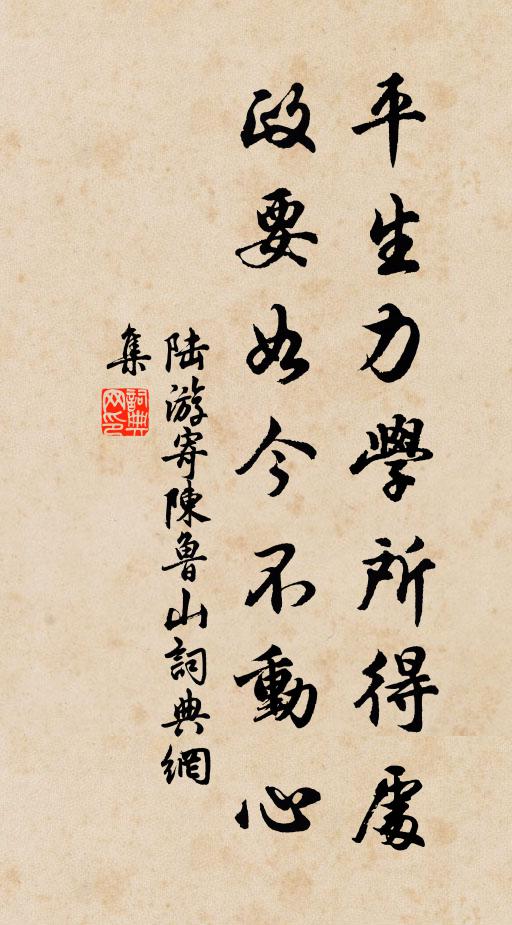 平生力學所得處
政要如今不動心
陆游寄陳魯山詞典網
集
詞典
网印